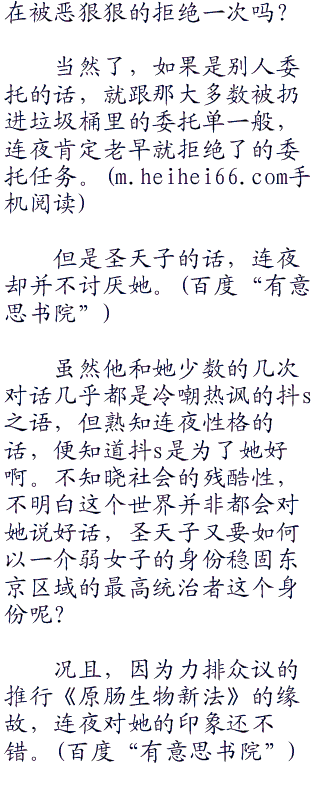 在被恶狠狠的拒绝一次吗？
当然了，如果是别人委
托的话，就跟那大多数被扔
进垃圾桶里的委托单一般，
连夜肯定老早就拒绝了的委
托任务。(m.heihei66.com手
机阅读)
但是圣天子的话，连夜
却并不讨厌她。(百度“有意
思书院”)
虽然他和她少数的几次
对话几乎都是冷嘲热讽的抖s
之语，但熟知连夜性格的
话，便知道抖s是为了她好
啊。不知晓社会的残酷性，
不明白这个世界并非都会对
她说好话，圣天子又要如何
以一介弱女子的身份稳固东
京区域的最高统治者这个身
份呢？
况且，因为力排众议的
推行《原肠生物新法》的缘
故，连夜对她的印象还不
错。(百度“有意思书院”)